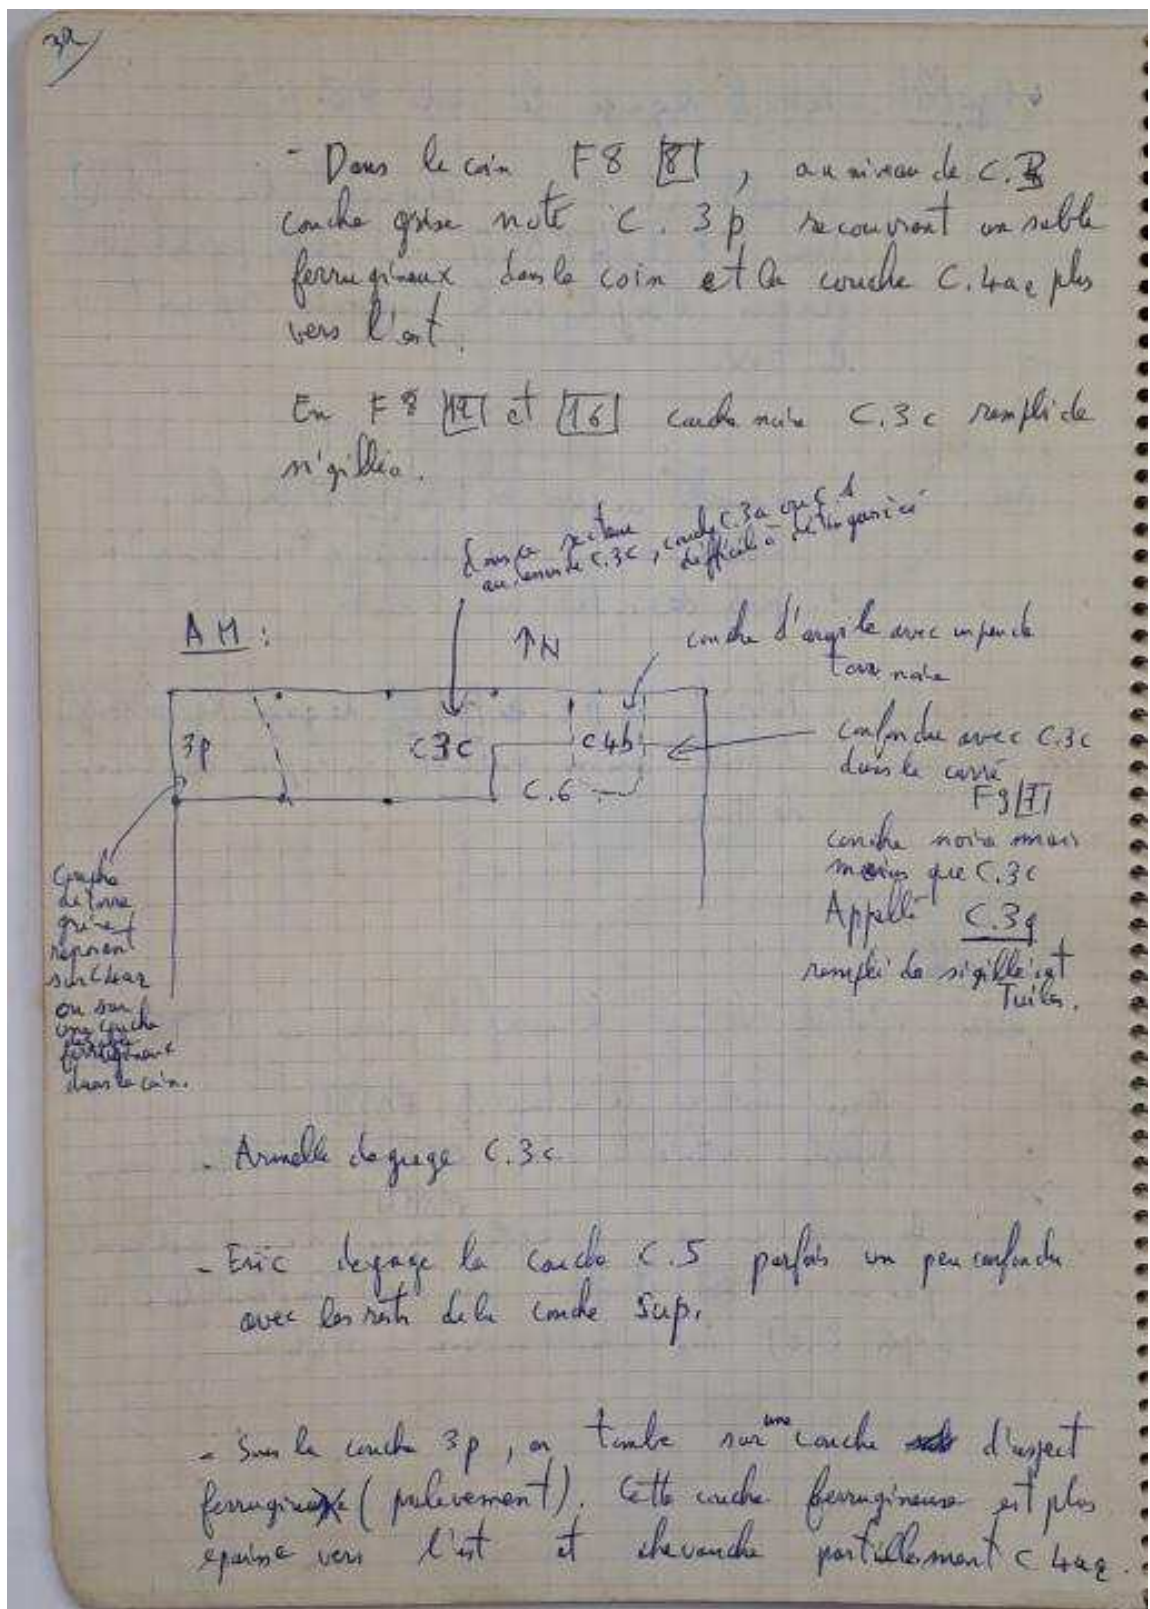 32
- Dans le coin F8 [8], au niveau de C.
couche grise noté C. 3p recouvrant un sable
ferrugineux dans le coin et la couche C.4a2 plus
vers l'est.
En F8 [12] et [16] couche noire C.3c rempli de
sigillée.
dans ce secteur
au dessus de C.3c, couche C.3a ou C.1
difficile à
AM :
↑N
couche d'argile avec un peu de
terre noire
3p
C3C
C4b
C.6
confondu avec C.3c
dans le carré
F9 [7]
couche noire mais
moins que C.3c
Appellé C.3q
rempli de sigillé et
Tuiles.
Couche
de terre
grise
reposant
sur C4a2
ou sur
une couche
de sable
ferrugineux
dans le coin.
- Armelle degage C.3c
- Eric degage la couche C.5 parfois un peu confondu
avec les rests de la couche sup.
- Sous la couche 3p, on tombe sur une couche d'aspect
ferrugineux (prelevement). Cette couche ferrugineuse est plus
epaisse vers l'est et chevauche partiellement C 4a2.